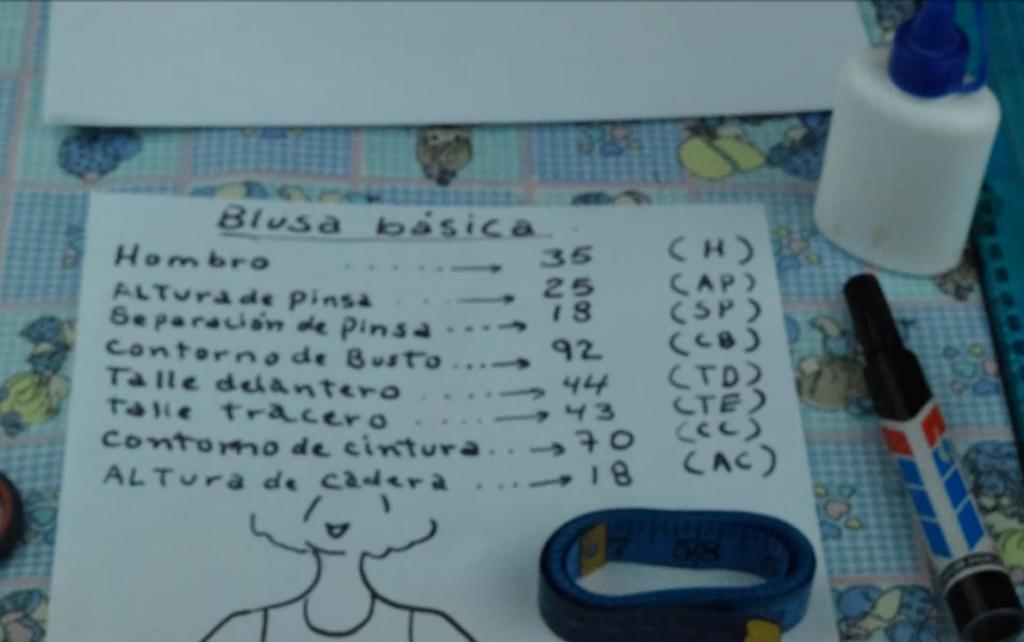 Blusa básica
Hombro ........→ 35 (H)
ALTura de pinsa ....→ 25 (AP)
Separación de pinsa ....→ 18 (SP)
contorno de Busto ....→ 92 (CB)
Talle delantero .....→ 44 (TD)
Talle tracero .....→ 43 (TE)
contorno de cintura...→ 70 (CC)
ALTura de cadera ....→ 18 (AC)
7 58